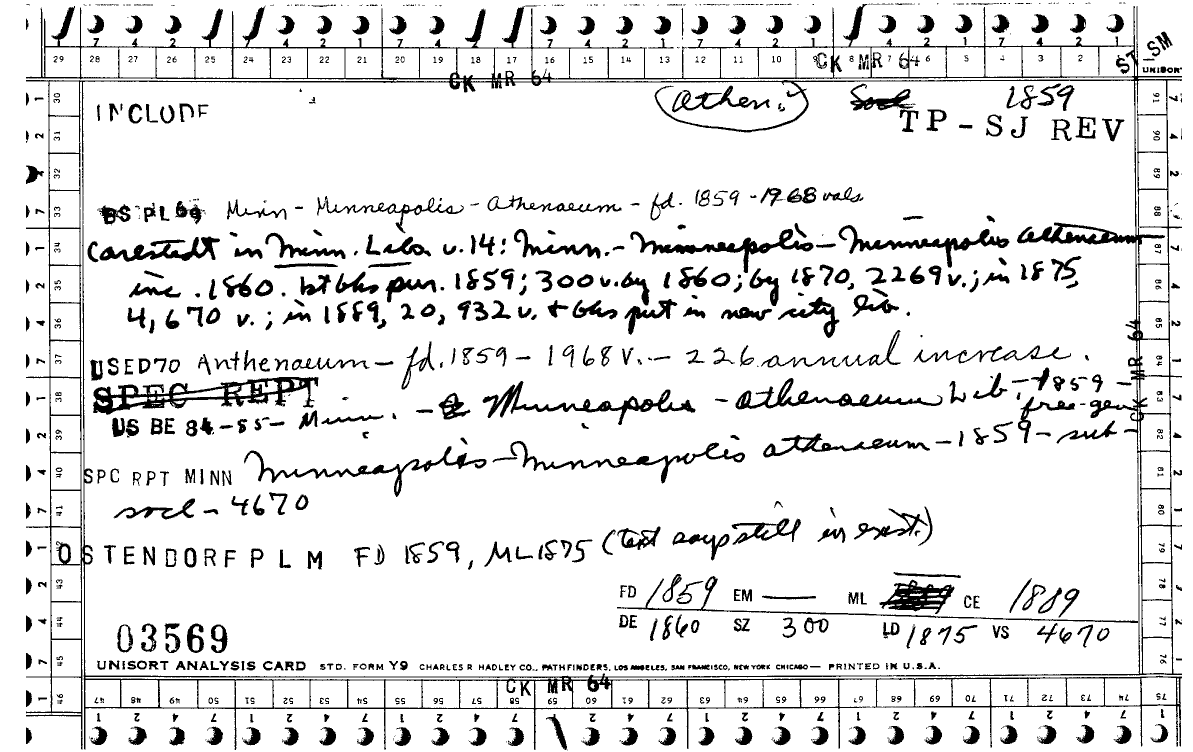 7 4 2 1 7 4 2 1 7 4 2 1 7 4 2 1 7 4 2 1 7 4 2 1 7 4 2 1
29 28 27 26 25 24 23 22 21 20 19 18 17 16 15 14 13 12 11 10 9 8 7 6 5 4 3 2
CK MR 64 CK MR 64 ST SM
UNISORT
INCLUDE (Athen.) Socl 1859
TP-SJ REV
BS PL 69 Minn - Minneapolis - Athenaeum - fd. 1859 - 1968 vols
Carlstedt in Minn. Libs. v.14: Minn. - Minneapolis - Minneapolis Athenaeum
inc. 1860. 1st bks pur. 1859; 300 v. by 1860; by 1870, 2269 v.; in 1875,
4,670 v.; in 1889, 20,932 v. + bks put in new city lib.
USED70 Anthenaeum - fd. 1859 - 1968 V. - 226 annual increase.
SPEC REPT
US BE 84-85 - Minn. - Minneapolis - Athenaeum Lib. - 1859 -
free-gen
SPC RPT MINN Minneapolis - Minneapolis Athenaeum - 1859 - sub -
socl - 4670
OSTENDORF P L M FD 1859, ML 1875 (text says still in exist.)
FD 1859 EM — ML CE 1889
DE 1860 SZ 300 LD 1875 VS 4670
03569
UNISORT ANALYSIS CARD STD. FORM Y9 CHARLES R HADLEY CO., PATHFINDERS, LOS ANGELES, SAN FRANCISCO, NEW YORK CHICAGO — PRINTED IN U.S.A.
CK MR 64
CK MR 64
47 48 49 50 51 52 53 54 55 56 57 58 59 60 61 62 63 64 65 66 67 68 69 70 71 72 73 74 75
1 2 4 7 1 2 4 7 1 2 4 7 1 2 4 7 1 2 4 7 1 2 4 7 1 2 4 7 1